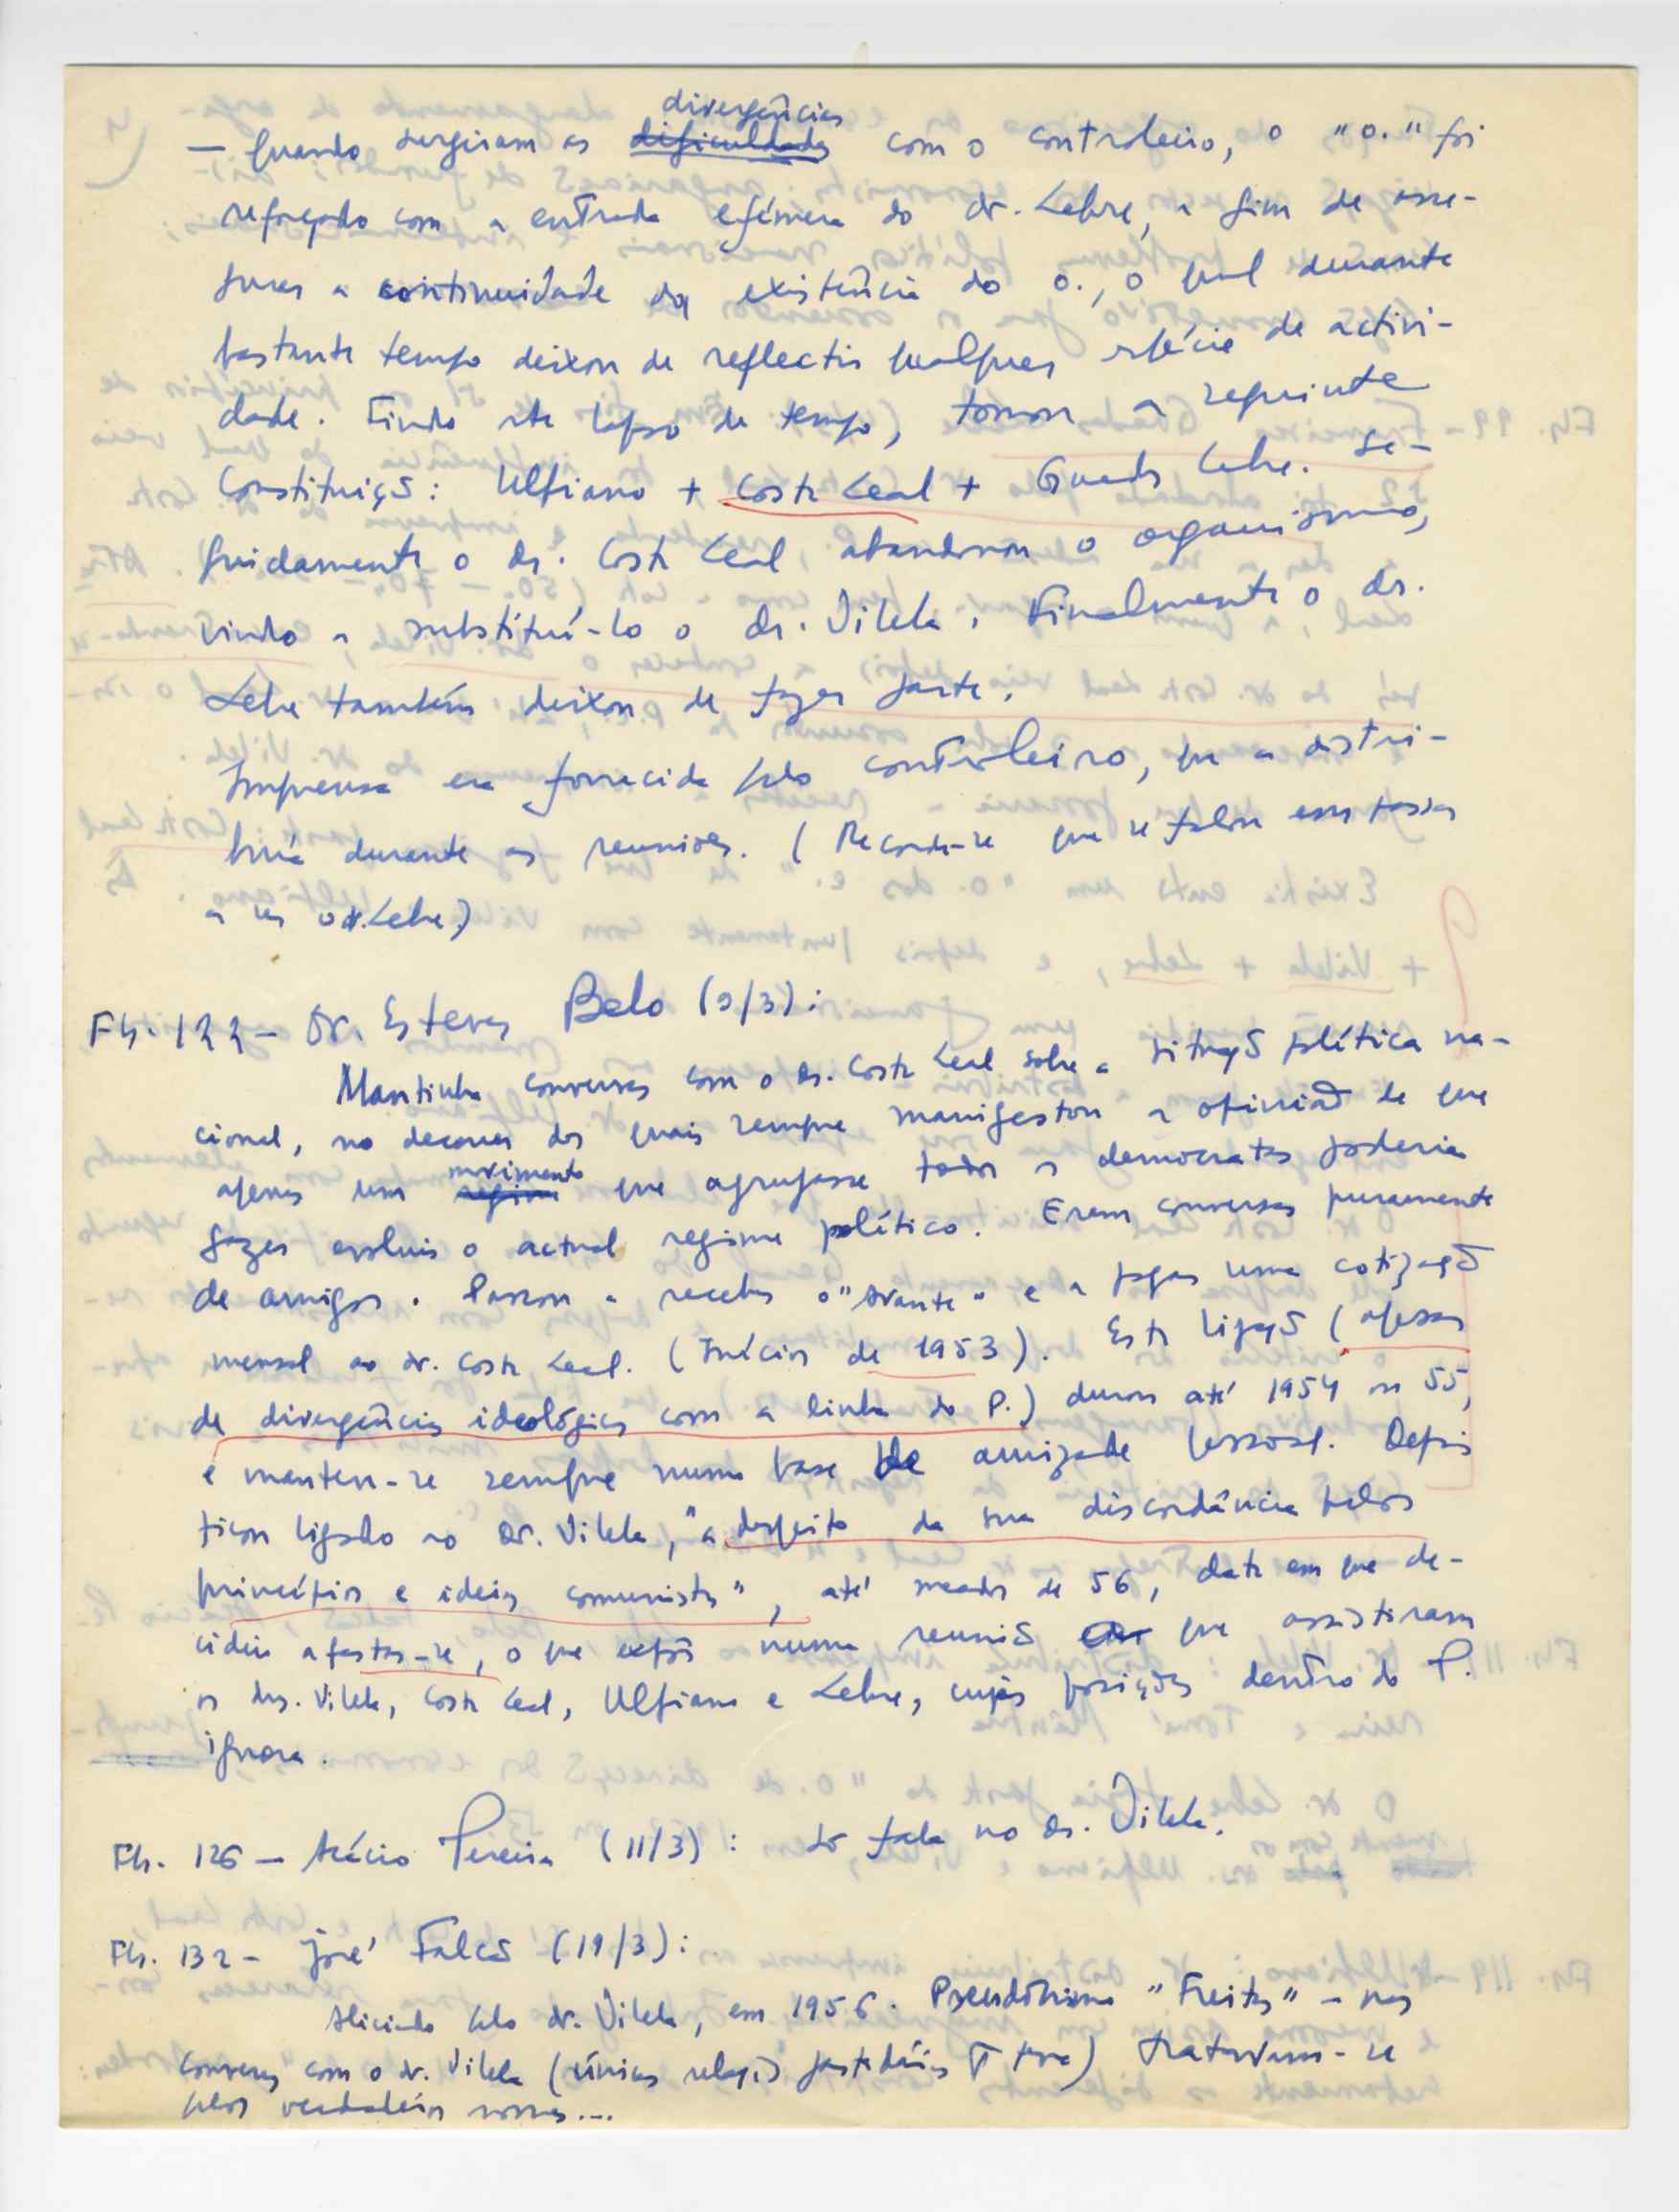 divergências
— Quando surgiram as dificuldades com o controleiro, o "o." foi
reforçado com a entrada efémera do dr. Lebre, a fim de asse-
gurar a continuidade da existência do o., o qual durante
bastante tempo deixou de reflectir qualquer espécie de activi-
dade. Findo este lapso de tempo, tomou a seguinte
constituição: Ulpiano + Costa Leal + Guedes Lebre. Se-
guidamente o dr. Costa Leal abandonou o organismo,
vindo a substituí-lo o dr. Vilela. Finalmente o dr.
Lebre também deixou de fazer parte.
Imprensa era fornecida pelo controleiro, que a distri-
buía durante as reuniões. (Recorda-se que se falou em passar
a ser o dr. Lebre.)
Fls. 122 — Dr. Esteves Belo (9/3):
Mantinha conversas com o dr. Costa Leal sobre a situação política na-
cional, no decorrer das quais sempre manifestou a opinião de que
movimento
apenas um regime que agrupasse todos os democratas poderia
fazer evoluir o actual regime político. Eram conversas puramente
de amigos. Passou a receber o "Avante" e a pagar uma cotização
mensal ao dr. Costa Leal. (Inícios de 1953). Esta ligação (apesar
de divergências ideológicas com a linha do P.) durou até 1954 ou 55,
e manteve-se sempre numa base de amizade pessoal. Depois
ficou ligado ao dr. Vilela, "a despeito da sua discordância pelos
princípios e ideias comunistas", até meados de 56, data em que de-
cidiu afastar-se, o que expôs numa reunião em que assistiram
os drs. Vilela, Costa Leal, Ulpiano e Lebre, cujas posições dentro do P.
ignora.
Fls. 126 — Acácio Pereira (11/3): só fala no dr. Vilela.
Fls. 132 — José Falcão (19/3):
Aliciado pelo dr. Vilela, em 1956. Pseudónimo "Freitas" — nas
conversas com o dr. Vilela (únicas relações partidárias q teve) tratavam-se
pelos verdadeiros nomes...